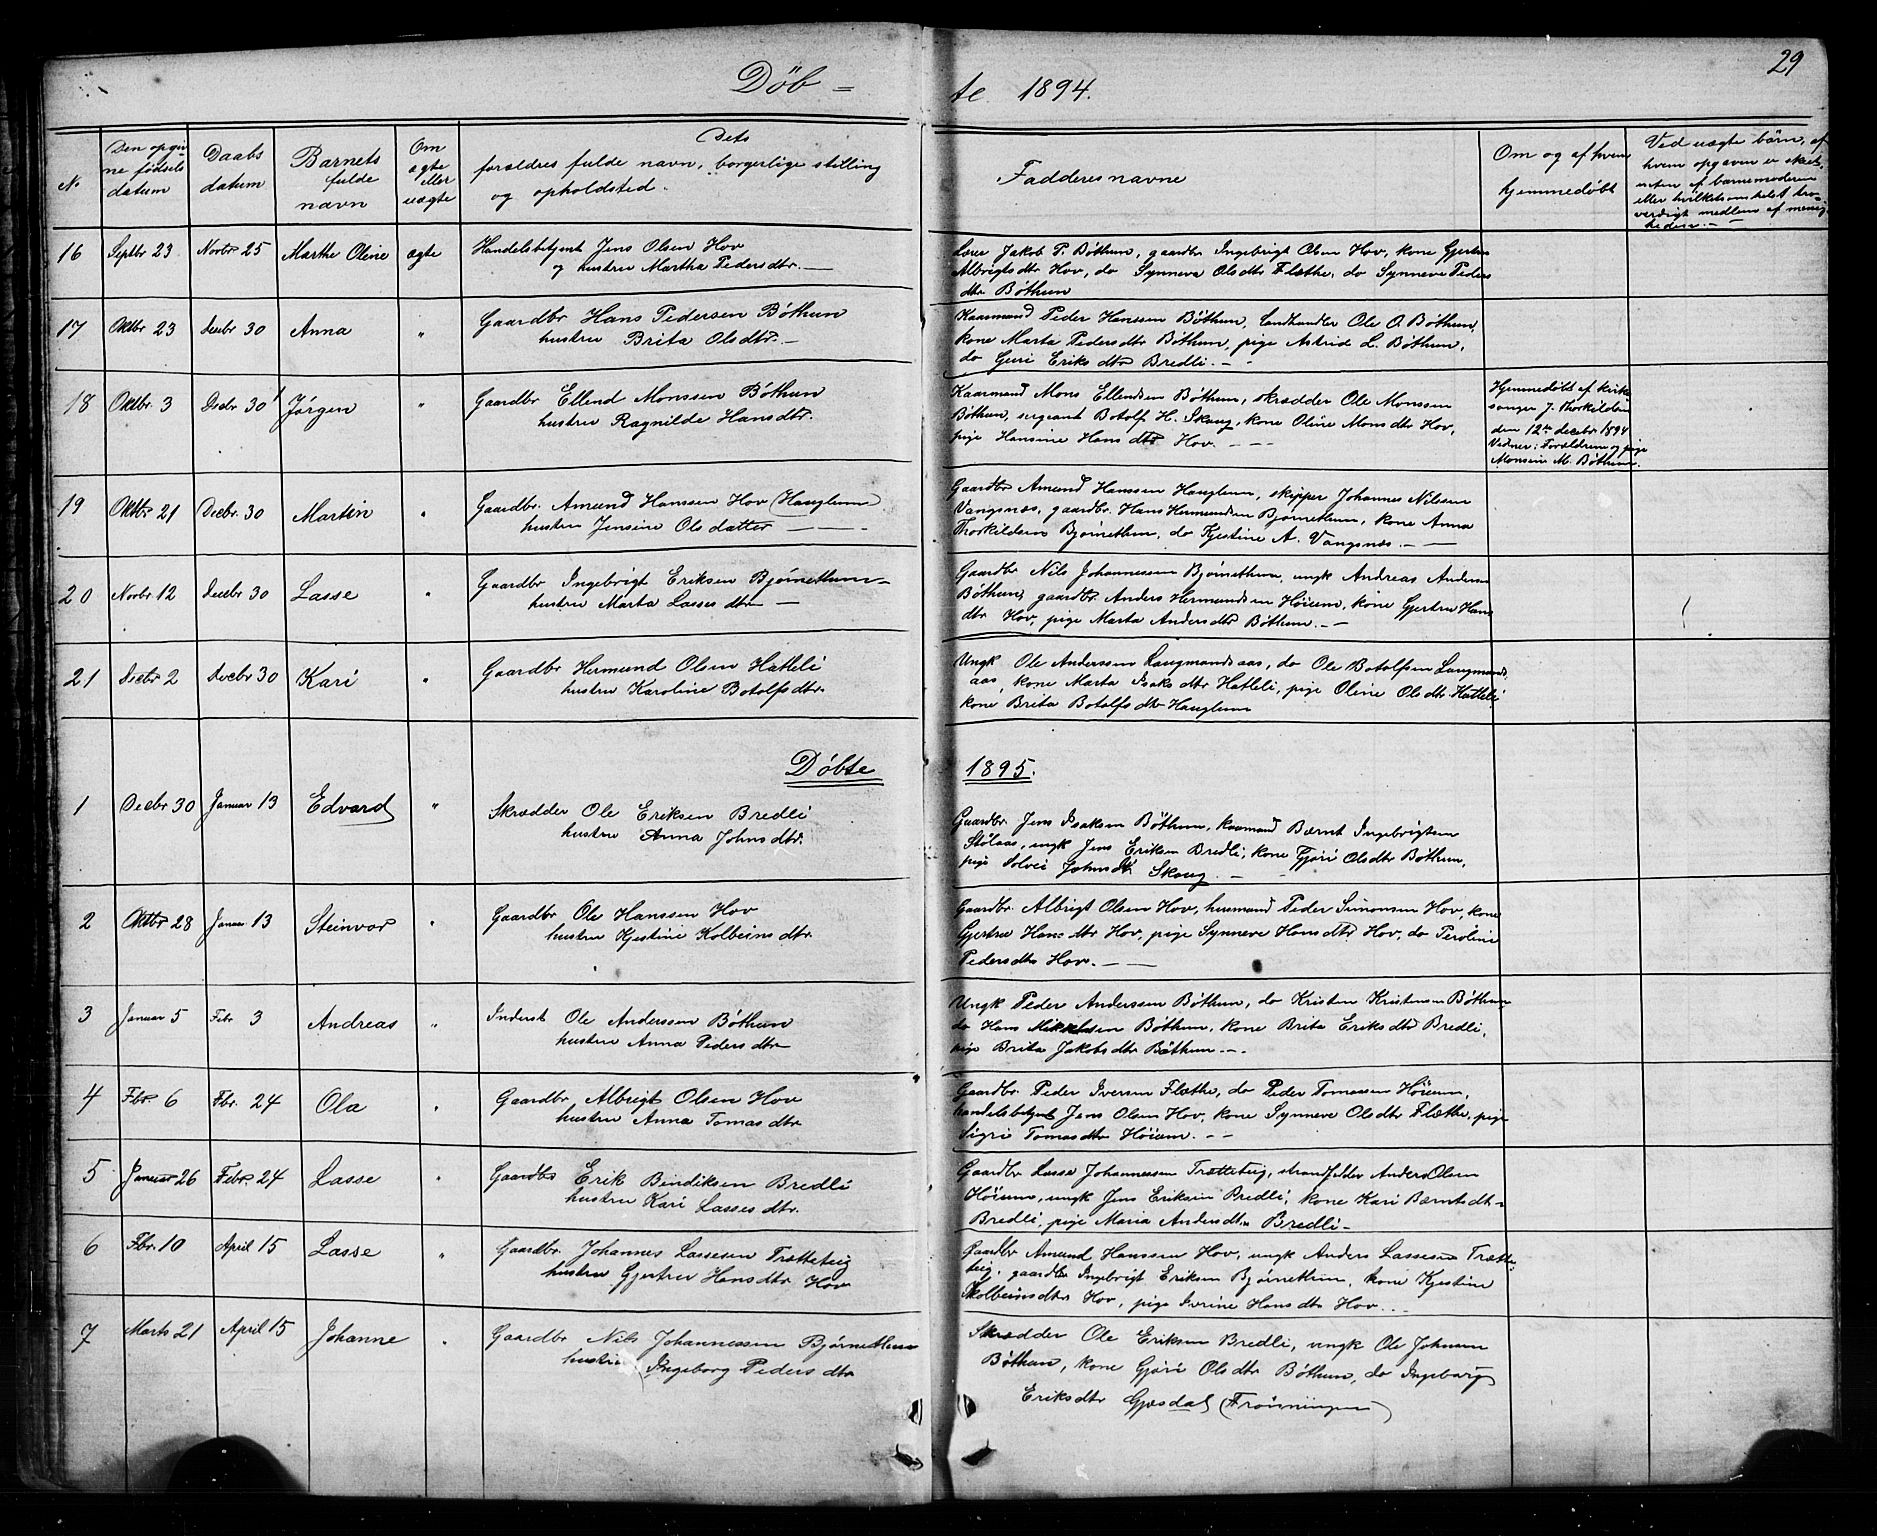 29
Döb - te 1894.
No
Den opgivne fødsels datum
Daabs datum
Barnets fulde navn
Om ægte eller uægte
Dets forældres fulde navn, borgerlige stilling og opholdsted.
Faddernes navne
Om og af hvem hjemmedøbt
Ved uægte børn, af hvem opgaven er sket, enten af barnemoderen eller hvilketsomhelst troværdigt medlem af menigheden. —
16 Septbr 23 Novbr 25 Marthe Oline ægte Handelsbetjent Jens Olsen Hov
og hustru Martha Pedersdtr. —
Lærer Jakob P. Bøthun, gaardbr Ingebrigt Olsen Hov, kone Gjertru
Albrigtsdtr Hov, do Synneva Olsdtr Flæthe, do Synneve Peders
dtr Bøthun
17 Oktbr 23 Decbr 30 Anna " Gaardbr Hans Pedersen Bøthun
hustru Brita Olsdtr. —
Kaarmand Peder Hanssen Bøthun, Landhandler Ole O. Bøthun,
kone Marta Pedersdtr Bøthun, pige Astrid L. Bøthun,
do Guri Eriksdtr Bredli. —
18 Oktbr. 3 Decbr 30 Jørgen " Gaardbr Ellend Monssen Bøthun
hustru Ragnilde Hansdtr.
Kaarmand Mons Ellendsen Bøthun, skrædder Ole Monssen
Bøthun, sergeant Botolf H. Skaug, kone Oline Monsdtr Hov,
pige Hansine Hansdtr Hov. — —
Hjemmedøbt af kirke
sanger J. Thorkildsen
den 12te decbr 1894
Vidner: Forældrene og pige
Monsine M. Bøthun.
19 Oktbr 21 Decbr. 30 Martin " Gaardbr. Amund Hanssen Hov (Hauglum)
hustru Jensine Olsdatter — —
Gaardbr Amund Hanssen Hauglum, skipper Johannes Nilssen
Vangsnæs, gaardbr. Hans Hermundsen Bjørnethun, kone Anna
Thorkildsen Bjørnethun, do Kjestine A. Vangsnæs. — —
20 Novbr 12 Decbr 30 Lasse " Gaardbr Ingebrigt Eriksen Bjørnethun —
hustru Marta Lassesdtr —
Gaardbr Nils Johannessen Bjørnethun, ungk Andreas Andersen
Bøthun, gaardbr Anders Hermundsen Høium, kone Gjertru Hans
dtr Hov, pige Marta Andersdtr Bøthun. —
21 Decbr 2 Decbr 30 Kari " Gaardbr Hermund Olsen Hatleli
hustru Karoline Botolfsdtr.
Ungk Ole Anderssen Laugmandsaas, do Ole Botolfsen Laugmands
aas, kone Marta Isaksdtr Hatleli, pige Oline Olsdtr Hatleli
kone Brita Botolfsdtr Hauglum
Döbte 1895.
1 Decbr 30 Januar 13 Edvard " Skrædder Ole Eriksen Bredli
hustru Anna Johnsdtr.
Gaardbr. Jens Isaksen Bøthun, kaarmand Bærnt Ingebrigtsen
Stølaas, ungk Jens Eriksen Bredli, kone Gjøri Olsdtr Bøthun,
pige Solvei Johnsdtr Skaug. —
2 Oktbr 28 Januar 13 Steinvor " Gaardbr Ole Hanssen Hov
hustru Kjestine Kolbeinsdtr.
Gaardbr. Albrigt Olsen Hov, husmand Peder Simonsen Hov, kone
Gjertru Hansdtr Hov, pige Synneve Hansdtr Hov, do Peroline
Pedersdtr Hov. — —
3 Januar 5 Febr 3 Andreas " Inderst Ole Anderssen Bøthun
hustru Anna Pedersdtr
Ungk Peder Anderssen Bøthun, do Kristen Kristensen Bøthun
do Hans Mikkelsen Bøthun, kone Brita Eriksdtr Bredli,
pige Brita Jakobsdtr Bøthun. —
4 Fbr. 6 Fbr. 24 Ola " Gaardbr. Albrigt Olsen Hov
hustru Anna Tomasdtr
Gaardbr Peder Iversen Flæthe, do Peder Tomassen Høium,
handelsbetjent Jens Olsen Hov, kone Synneve Olsdtr Flæthe, pige
Sigri Tomasdtr Høium. —
5 Januar 26 Febr 24 Lasse Gaardbr Erik Bendiksen Bredli
hustru Kari Lassesdtr.
Gaardbr Lasse Johannessen Trætteteig, strandsidder Anders Olsen
Høium, ungk Jens Eriksen Bredli, kone Kari Bærntsdtr
Bredli, pige Maria Andersdtr Bredli —
6 Fbr. 10 April 15 Lasse " Gaardbr. Johannes Lassesen Trætteteig
hustru Gjertru Hansdtr Hov
Gaardbr Amund Hanssen Hov, ungk Anders Lassesen Trætte
teig, gaardbr Ingebrigt Eriksen Bjørnethun, kone Kjestine
Kolbeinsdtr Hov, pige Iverine Hansdtr Hov. —
7 Marts 21 April 15 Johanne " Gaardbr Nils Johannessen Bjørnethun
hustru Ingeborg Pedersdtr
Skrædder Ole Eriksen Bredli, ungk Ole Johnsen
Bøthun, kone Gjøri Olsdtr Bøthun, do Ingeborg
Eriksdtr Gjæsdal (Frønningen)